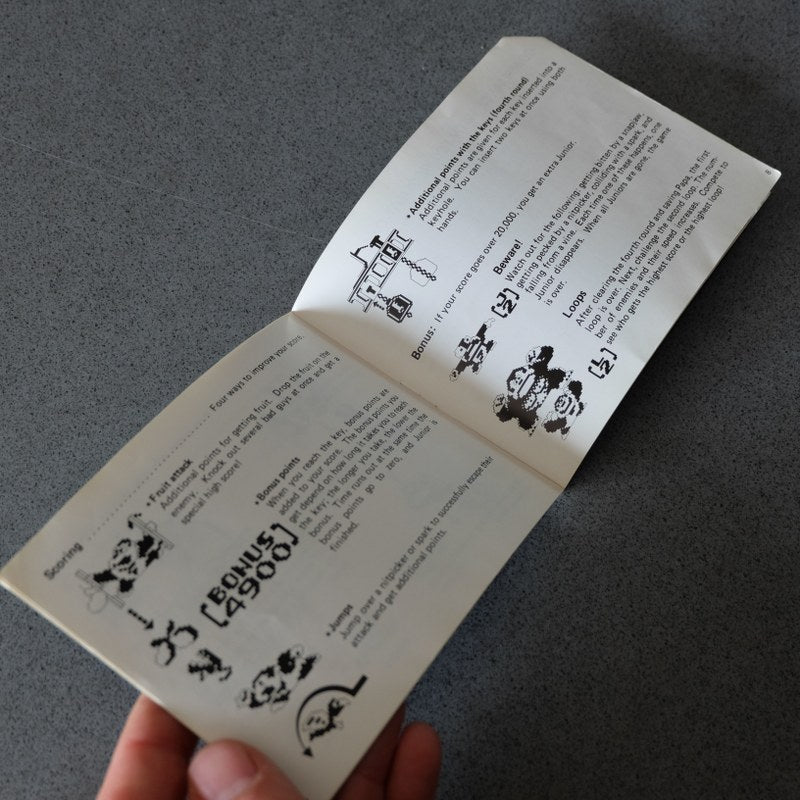 Scoring ........................ Four ways to improve your score.
• Fruit attack
Additional points for getting fruit. Drop the fruit on the
enemy. Knock out several bad guys at once and get a
special high score!
• Bonus points
When you reach the key, bonus points are
added to your score. The bonus points you
get depend on how long it takes you to reach
the key; the longer you take, the lower the
bonus. Time runs out at the same time the
bonus points go to zero, and Junior is
finished.
[BONUS
4900]
• Jumps
Jump over a nitpicker or spark to successfully escape their
attack and get additional points.
• Additional points with the keys (fourth round)
Additional points are given for each key inserted into a
keyhole. You can insert two keys at once using both
hands.
Bonus: If your score goes over 20,000, you get an extra Junior.
Beware!
Watch out for the following: getting bitten by a snapjaw,
getting pecked by a nitpicker, colliding with a spark, and
falling from a vine. Each time one of these happens, one
Junior disappears. When all Juniors are gone, the game
is over.
Loops
After clearing the fourth round and saving Papa, the first
loop is over. Next, challenge the second loop. The num-
ber of enemies and their speed increases. Compete to
see who gets the highest score or the highest loop!